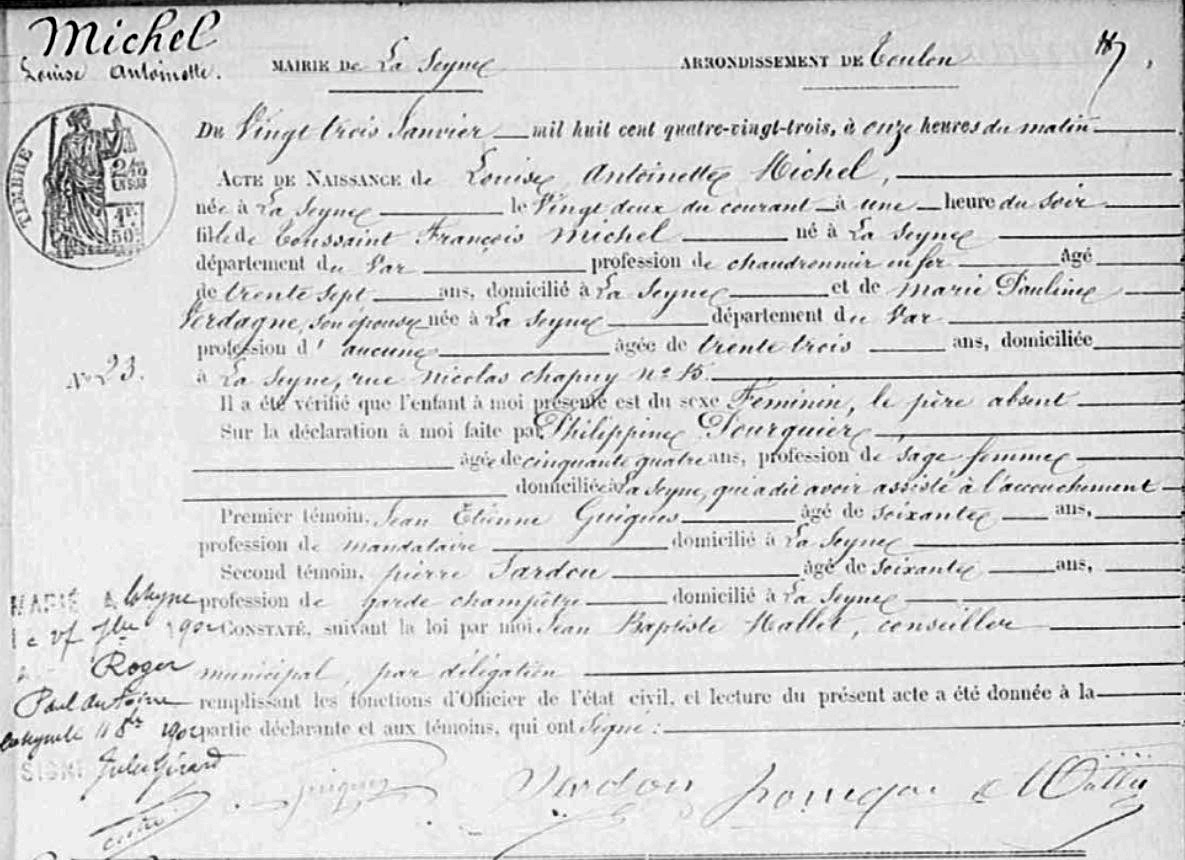 Michel
Louise Antoinette.
MAIRIE DE La Seyne
ARRONDISSEMENT DE Toulon
TIMBRE
2/10
EN SUS
1F.
50c
Du Vingt trois Janvier mil huit cent quatre-vingt-trois, à onze heures du matin
ACTE DE NAISSANCE de Louise, Antoinette, Michel,
née à La Seyne le Vingt deux du courant à une heure du soir
fille de Toussaint François Michel né à La Seyne
département du Var profession de chaudronnier en fer âgé
de trente sept ans, domicilié à La Seyne et de Marie Pauline
Verdagne, son épouse née à La Seyne département du Var
profession d' aucune âgée de trente trois ans, domiciliée
No 23.
à La Seyne, rue Nicolas Chapuy no 15.
Il a été vérifié que l'enfant à moi présenté est du sexe Feminin, le père absent
Sur la déclaration à moi faite par Philippine Pourquier
âgée de cinquante quatre ans, profession de sage femme
domiciliée à La Seyne, qui a dit avoir assisté à l'accouchement
Premier témoin, Jean Etienne Guigues âgé de soixante ans,
profession de mandataire domicilié à La Seyne
Second témoin, pierre Sardou âgé de soixante ans,
profession de garde champêtre domicilié à La Seyne
CONSTATÉ, suivant la loi par moi Jean Baptiste Mallet, conseiller
municipal, par déligation
remplissant les fonctions d'Officier de l'état civil, et lecture du présent acte a été donnée à la
partie déclarante et aux témoins, qui ont signé :
MARIÉ A
le 1902
Roger
Paul Antoine
1902
SIGNÉ Jules Gérard
Sardou